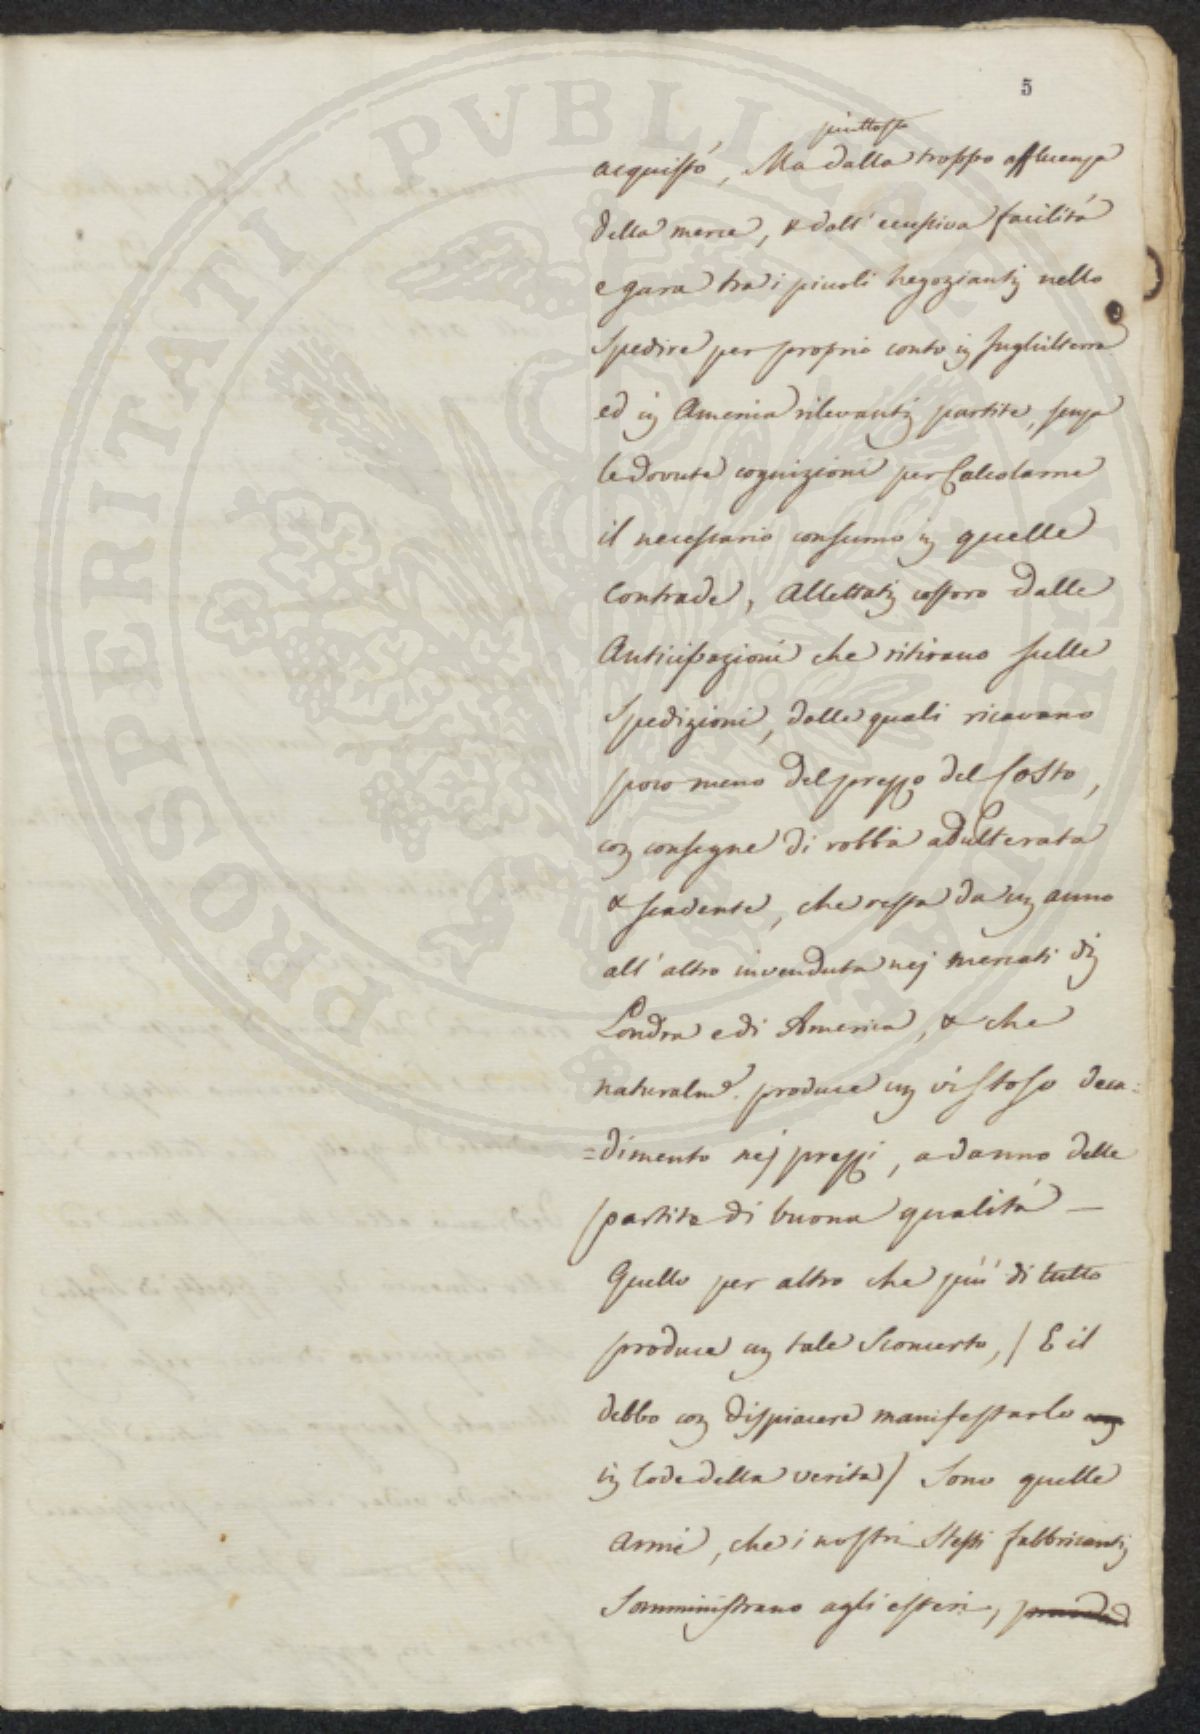 5
piuttosto
acquisto, Ma dalla troppo affluenza
della merce, & dall' eccessiva facilità
e gara tra i piccoli Negozianti nello
Spedire per proprio conto in Inghilterra
ed in America rilevanti partite, senza
le dovute cognizioni per Calcolarne
il necessario consumo in quelle
Contrade, Allettati costoro dalle
Anticipazioni che ritirano sulle
Spedizioni, dalle quali ricavano
poco meno del prezzo del Costo,
con consegne di robba adulterata
& scadente, che resta da un anno
all' altro invenduta nei mercati di
Londra e di America, & che
naturalme. produce un vistoso deca=
=dimento nei prezzi, a danno delle
partite di buona qualità —
Quello per altro che più di tutto
produce un tale Sconcerto, / E il
debbo con dispiacere manifestarlo
in lode della verità / Sono quelle
Armi, che i nostri Stessi fabbricanti
Somministrano agli esteri,
PROSPERITATI PVBLICAE AVGENDAE